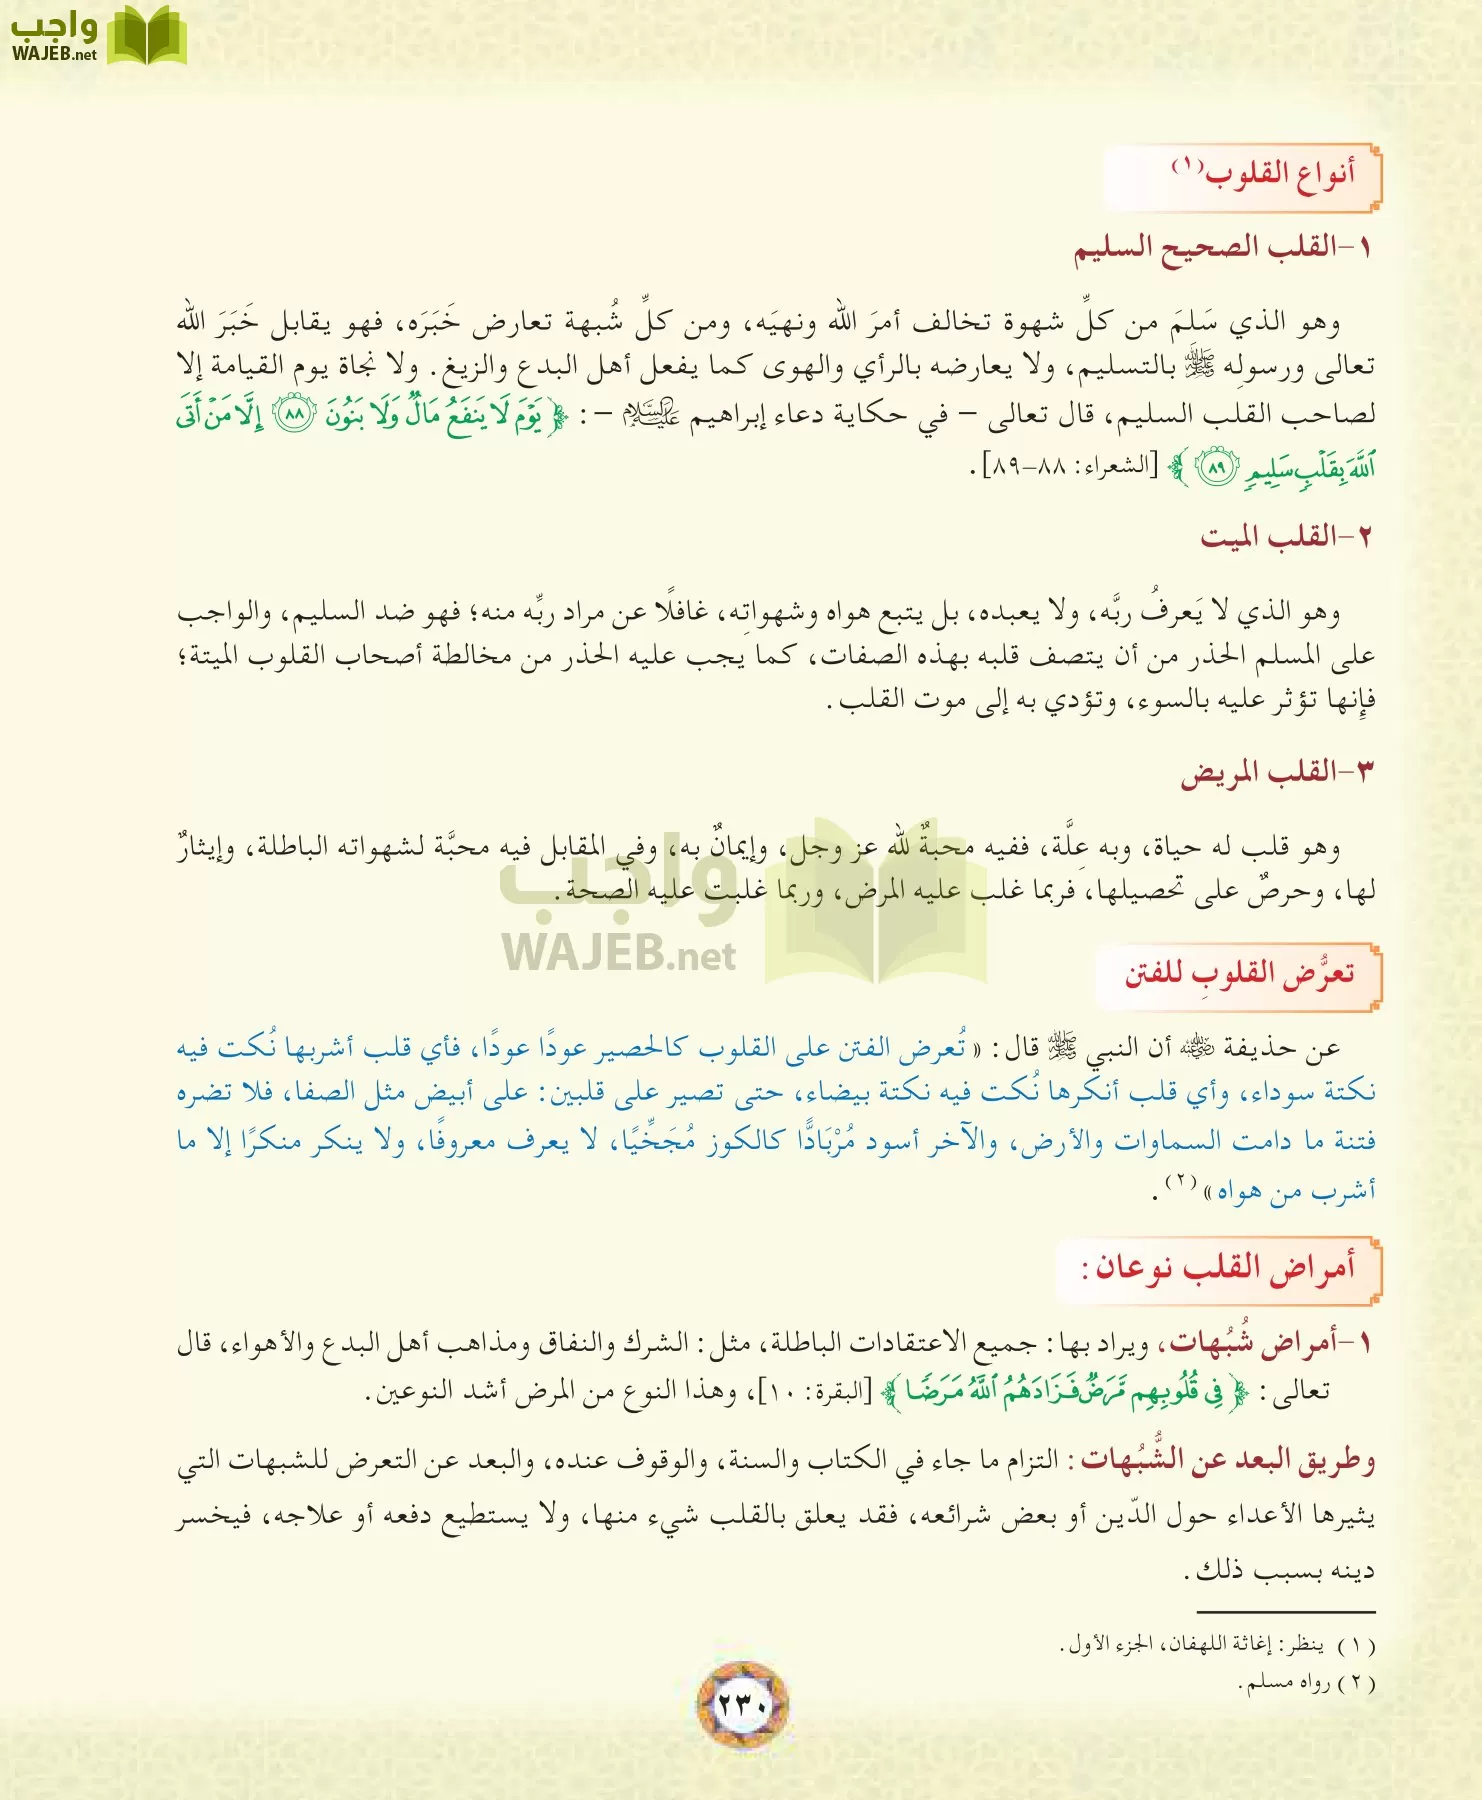 واجب
WAJEB.net
أنواع القلوب(١)
١-القلب الصحيح السليم
وهو الذي سَلمَ من كلِّ شهوة تخالف أمرَ الله ونهيَه، ومن كلِّ شُبهة تعارض خَبَرَه، فهو يقابل خَبَرَ الله
تعالى ورسولِه ﷺ بالتسليم، ولا يعارضه بالرأي والهوى كما يفعل أهل البدع والزيغ. ولا نجاة يوم القيامة إلا
لصاحب القلب السليم، قال تعالى – في حكاية دعاء إبراهيم عليه السلام –: ﴿ يَوْمَ لَا يَنفَعُ مَالٌ وَلَا بَنُونَ ٨٨ إِلَّا مَنْ أَتَى
ٱللَّهَ بِقَلْبٍ سَلِيمٍ ٨٩ ﴾ [الشعراء: ٨٨–٨٩].
٢-القلب الميت
وهو الذي لا يَعرفُ ربَّه، ولا يعبده، بل يتبع هواه وشهواتِه، غافلًا عن مراد ربِّه منه؛ فهو ضد السليم، والواجب
على المسلم الحذر من أن يتصف قلبه بهذه الصفات، كما يجب عليه الحذر من مخالطة أصحاب القلوب الميتة؛
فإنها تؤثر عليه بالسوء، وتؤدي به إلى موت القلب.
٣-القلب المريض
وهو قلب له حياة، وبه عِلَّة، ففيه محبةٌ لله عز وجل، وإيمانٌ به، وفي المقابل فيه محبَّة لشهواته الباطلة، وإيثارٌ
لها، وحرصٌ على تحصيلها، فربما غلب عليه المرض، وربما غلبت عليه الصحة.
واجب
WAJEB.net
تعرُّض القلوبِ للفتن
عن حذيفة رضي الله عنه أن النبي ﷺ قال: «تُعرض الفتن على القلوب كالحصير عودًا عودًا، فأي قلب أشربها نُكت فيه
نكتة سوداء، وأي قلب أنكرها نُكت فيه نكتة بيضاء، حتى تصير على قلبين: على أبيض مثل الصفا، فلا تضره
فتنة ما دامت السماوات والأرض، والآخر أسود مُرْبَادًّا كالكوز مُجَخِّيًا، لا يعرف معروفًا، ولا ينكر منكرًا إلا ما
أشرب من هواه»(٢).
أمراض القلب نوعان:
١-أمراض شُبُهات، ويراد بها: جميع الاعتقادات الباطلة، مثل: الشرك والنفاق ومذاهب أهل البدع والأهواء، قال
تعالى: ﴿ فِى قُلُوبِهِم مَّرَضٌ فَزَادَهُمُ ٱللَّهُ مَرَضًا ﴾ [البقرة: ١٠]، وهذا النوع من المرض أشد النوعين.
وطريق البعد عن الشُّبُهات: التزام ما جاء في الكتاب والسنة، والوقوف عنده، والبعد عن التعرض للشبهات التي
يثيرها الأعداء حول الدّين أو بعض شرائعه، فقد يعلق بالقلب شيء منها، ولا يستطيع دفعه أو علاجه، فيخسر
دينه بسبب ذلك.
(١) ينظر: إغاثة اللهفان، الجزء الأول.
(٢) رواه مسلم.
٢٣٠